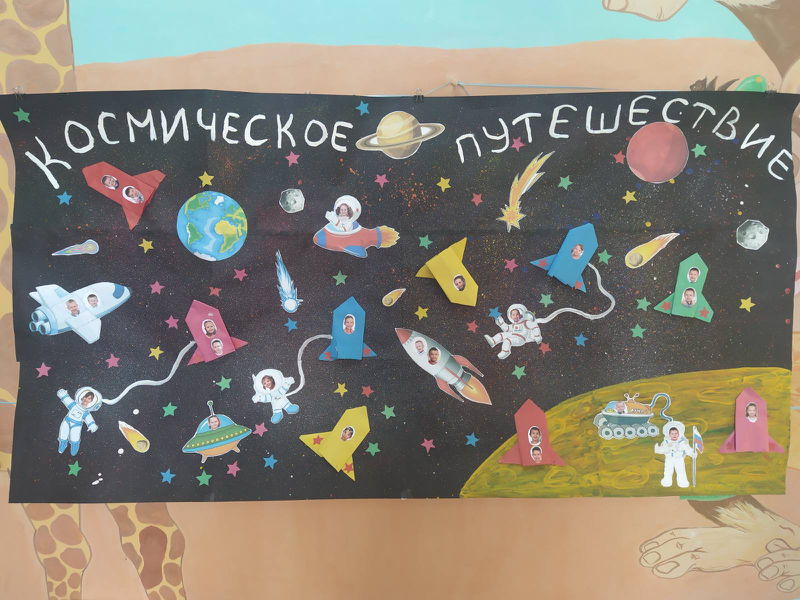 КОСМИЧЕСКОЕ ПУТЕШЕСТВИЕ